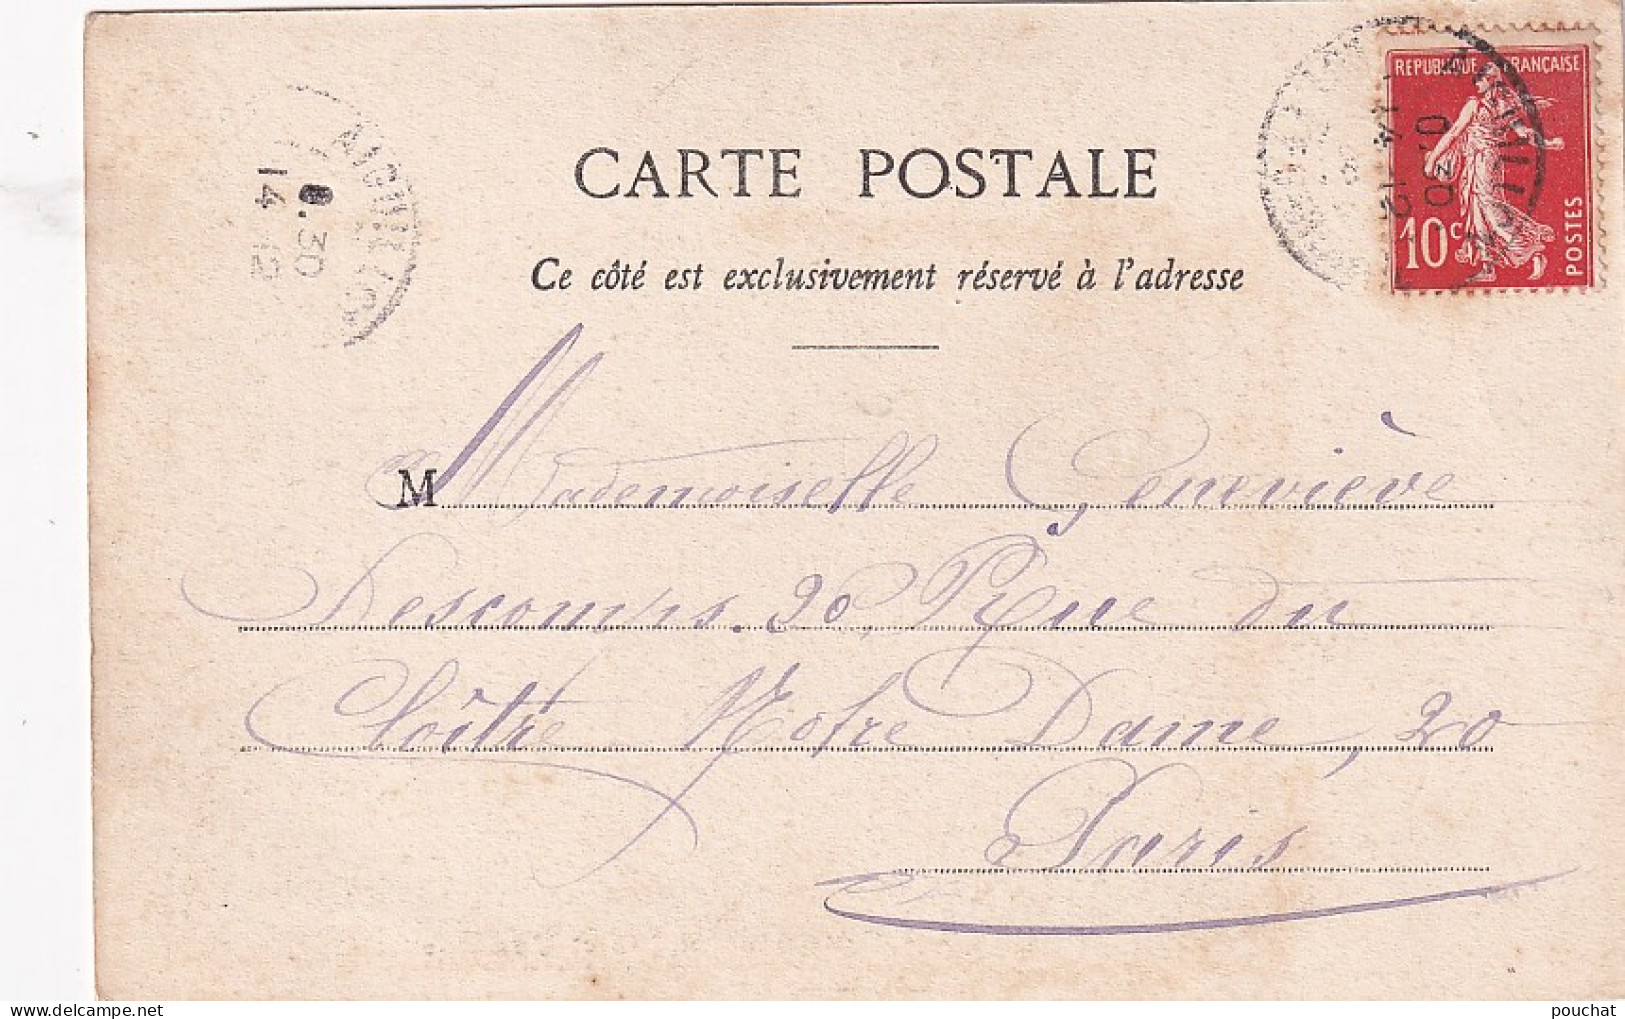 CARTE POSTALE
Ce côté est exclusivement réservé à l'adresse
REPUBLIQUE FRANÇAISE
10c
POSTES
AIGUILLON
8.30
14 12
AIGUILLON
M Mademoiselle Geneviève
Descomis. 20, Rue du
Cloître Notre Dame, 20
Paris
pouchat